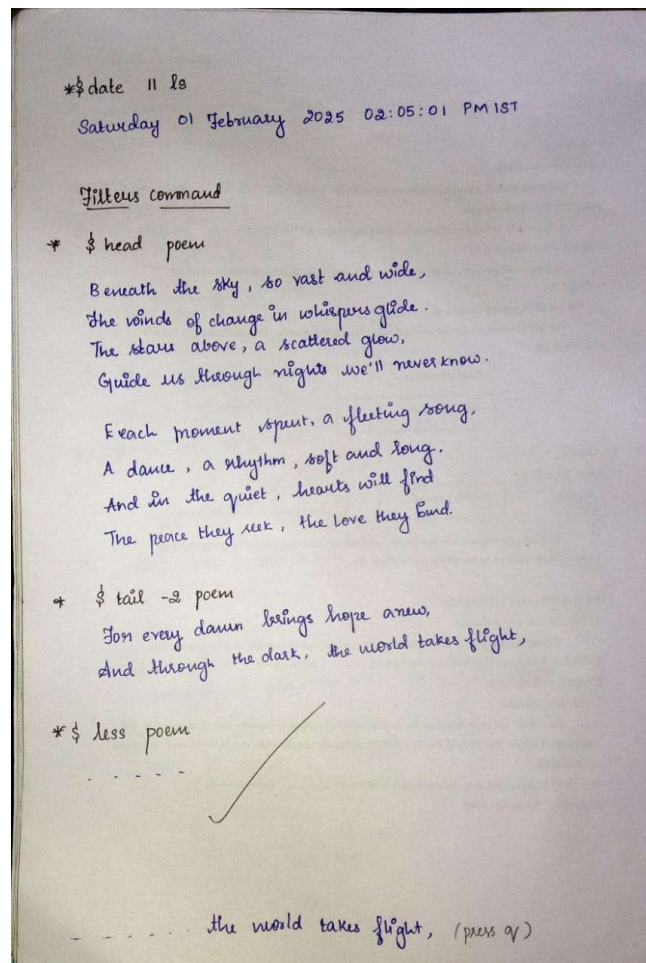 *$ date || ls
Saturday 01 February 2025 02:05:01 PM IST
Filters command
* $ head poem
Beneath the sky, so vast and wide,
The winds of change in whispers glide.
The stars above, a scattered glow,
Guide us through nights we'll never know.
Eeach moment spent, a fleeting song,
A dance, a rhythm, soft and long.
And in the quiet, hearts will find
The peace they seek, the Love they bind.
* $ tail -2 poem
For every dawn brings hope anew,
And through the dark, the world takes flight,
* $ less poem
. . . . . .
. . . . . . the world takes flight, (press q)